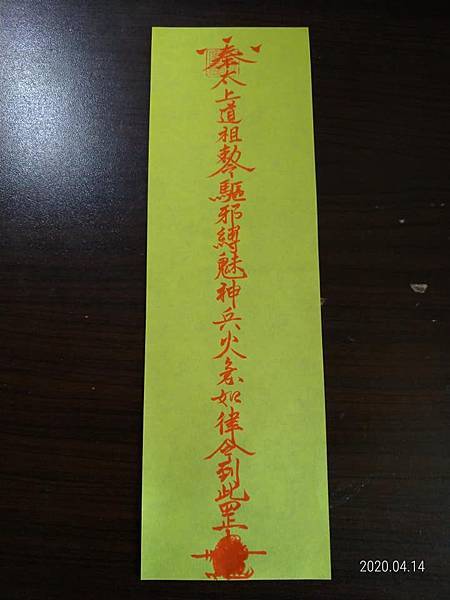 奉太上道祖勅令驅邪縛魅神兵火急如律令到此罡
2020.04.14